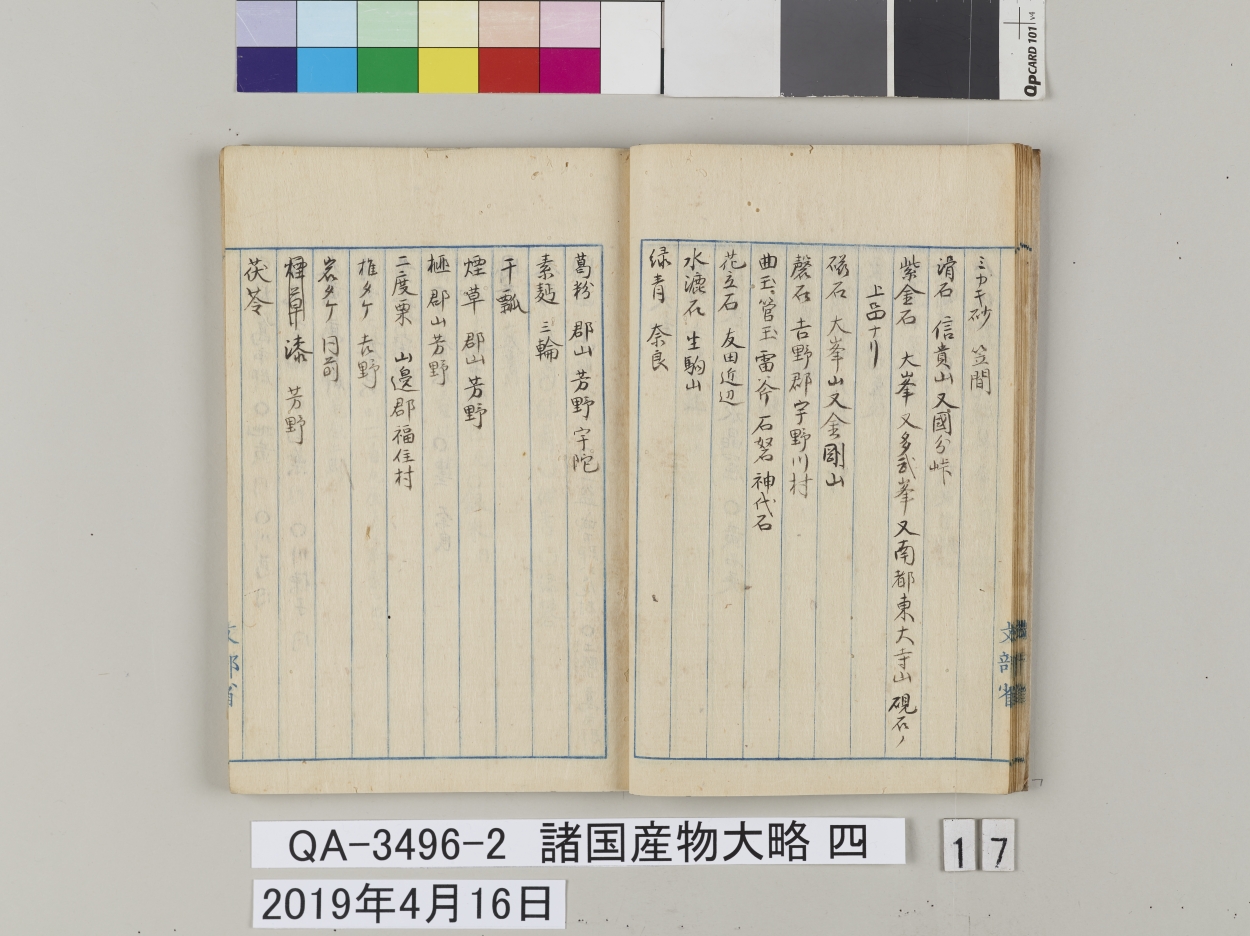 ミカキ砂 笠間
滑石 信貴山又國分峠
紫金石 大峯 又多武峯 又南都東大寺山 硯石ノ
上品ナリ
磁石 大峯山又金剛山
磬石 吉野郡宇野川村
曲玉 管玉 雷斧 石弩 神代石
花立石 友田近辺
水漉石 生駒山
緑青 奈良
文部省
葛粉 郡山 芳野 宇陀
素麺 三輪
干瓢
煙草 郡山 芳野
榧 郡山 芳野
二度栗 山邊郡福住村
椎タケ 吉野
岩タケ 同前
煙草漆 芳野
茯苓
文部省
QA-3496-2 諸国産物大略 四
17
2019年4月16日
QPCARD 101 v4